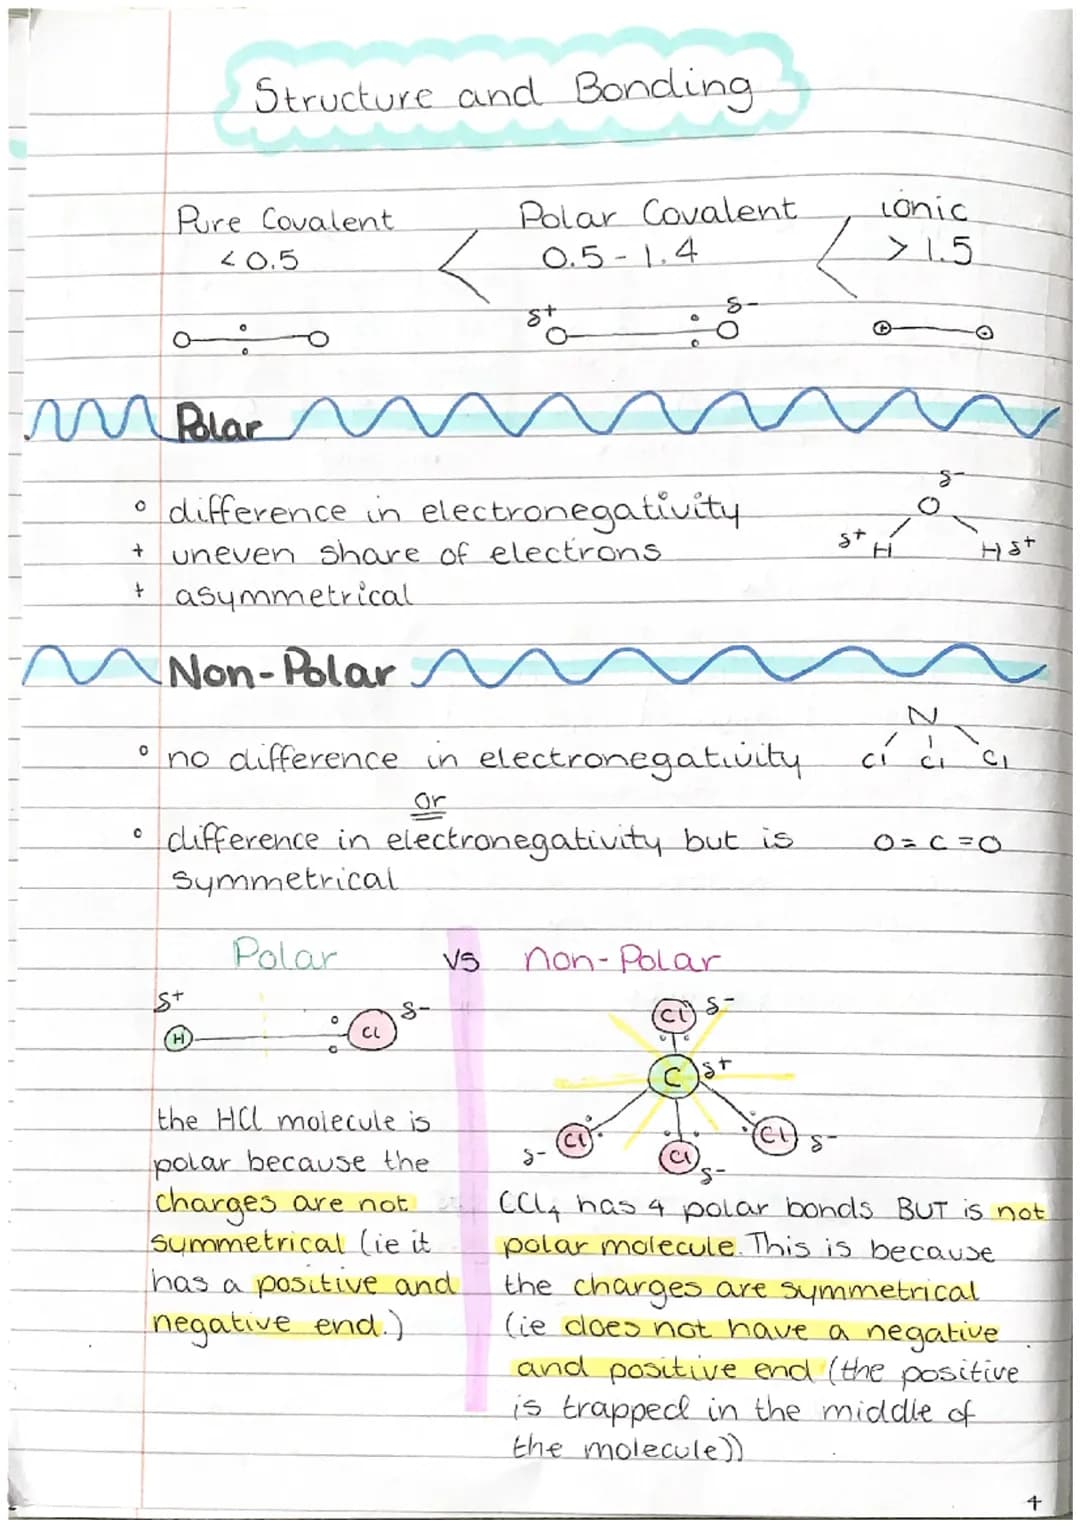 Structure and Bonding
Pure Covalent < Polar Covalent < ionic
<0.5 0.5-1.4 >1.5
δ+ δ-
+ -
Polar
° difference in electronegativity
+ uneven share of electrons
+ asymmetrical
δ-
O
δ+ H H δ+
Non-Polar
° no difference in electronegativity
or
° difference in electronegativity but is
symmetrical
N
Cl Cl Cl
O=C=O
Polar vs non-Polar
δ+ δ-
H Cl
the HCl molecule is
polar because the
charges are not
symmetrical (ie it
has a positive and
negative end.)
Cl δ-
C δ+
δ- Cl Cl δ- Cl δ-
CCl₄ has 4 polar bonds BUT is not
polar molecule. This is because
the charges are symmetrical
(ie does not have a negative
and positive end (the positive
is trapped in the middle of
the molecule))
4